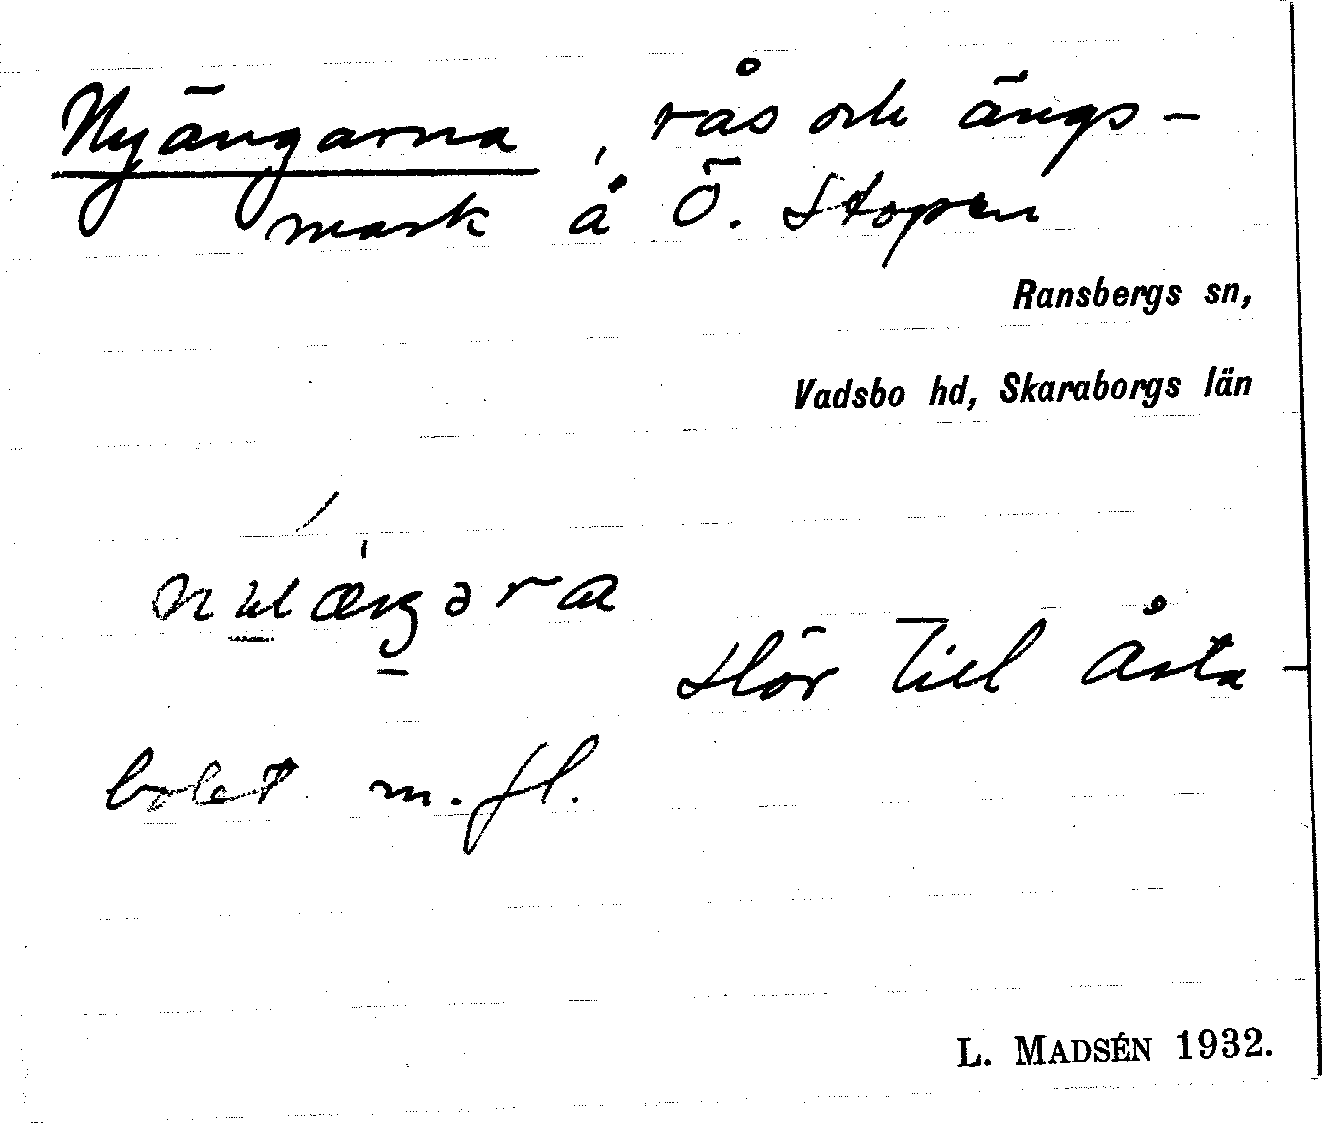 Nyängarna, rås och ängs-
mark å Ö. Stopen
Ransbergs sn,
Vadsbo hd, Skaraborgs län
Hör till Åsta-
bolet m. fl.
L. MADSÉN 1932.